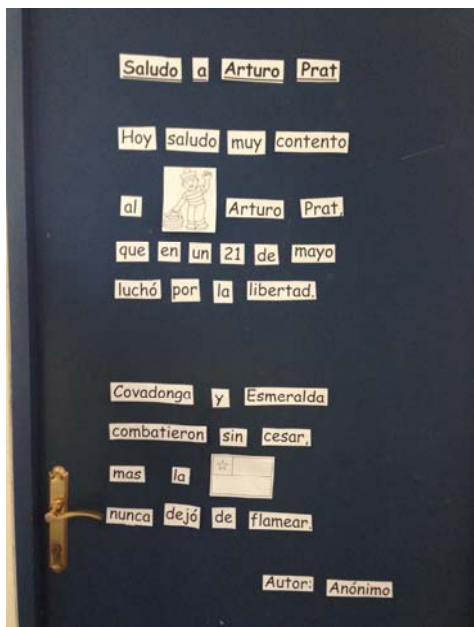 Saludo a Arturo Prat
Hoy saludo muy contento
al Arturo Prat,
que en un 21 de mayo
luchó por la libertad.
Covadonga y Esmeralda
combatieron sin cesar,
mas la
nunca dejó de flamear.
Autor: Anónimo